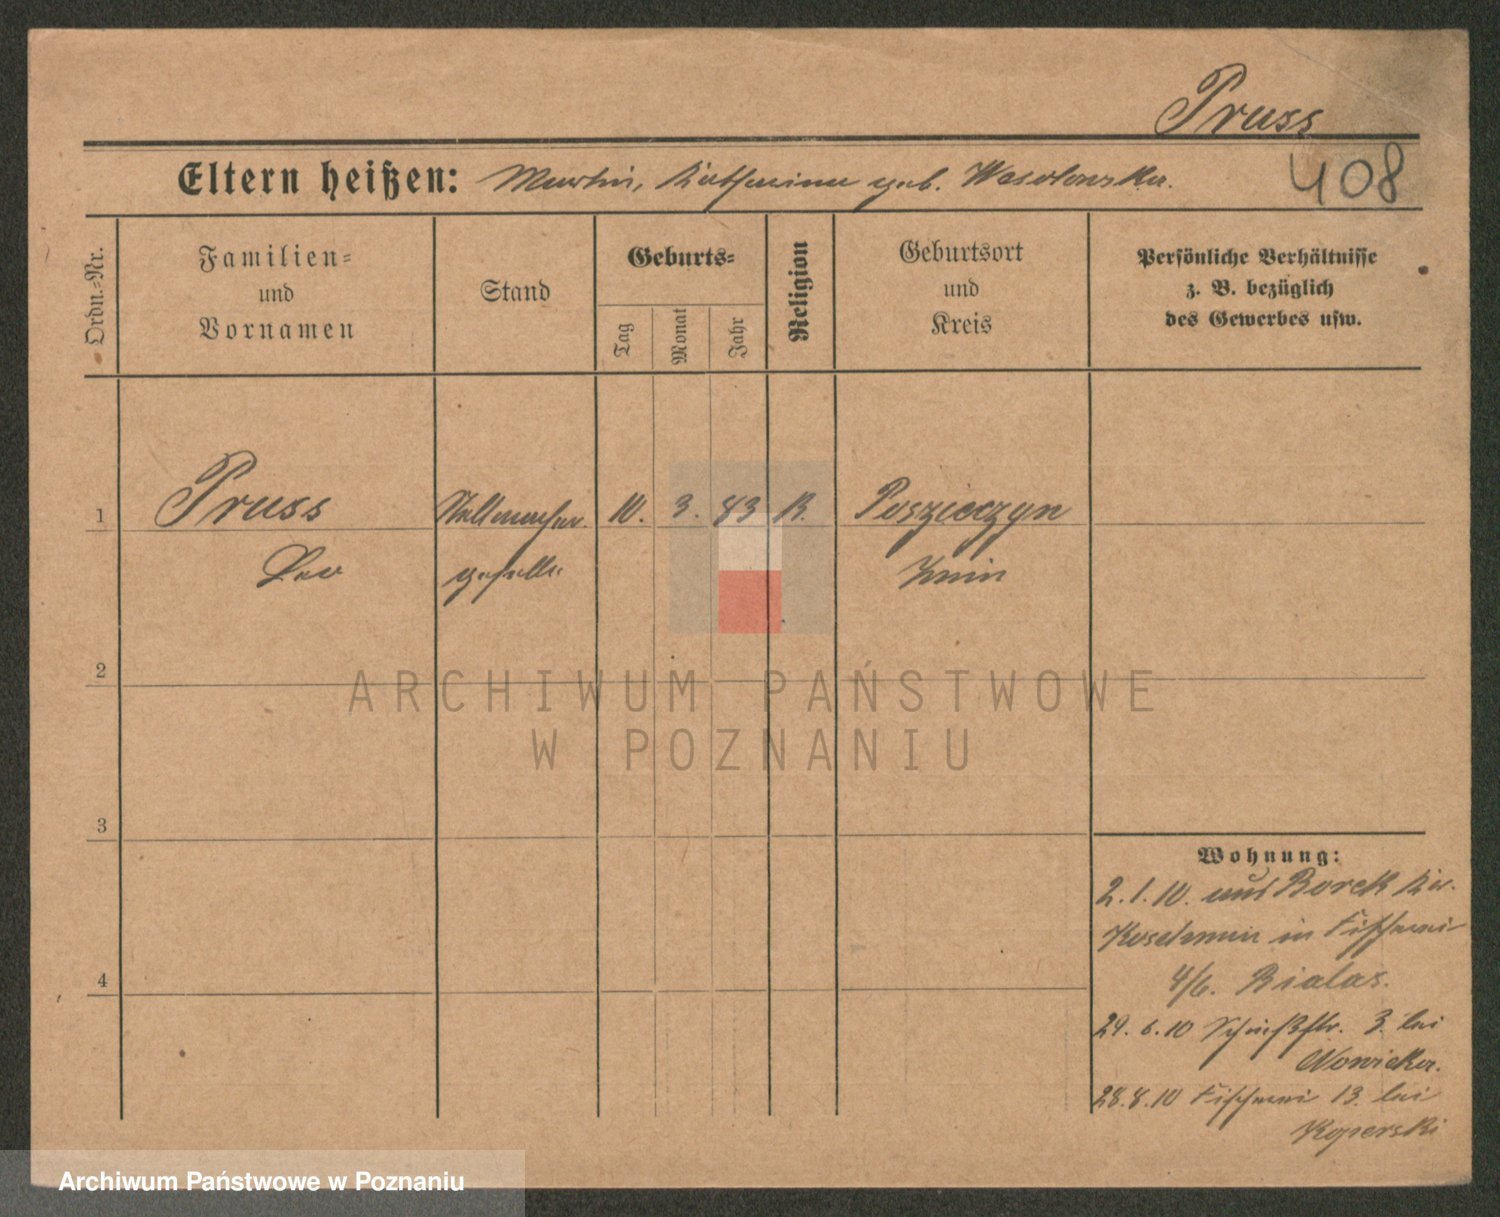 Pruss
Eltern heißen: Martin, Katharina geb. Wesolowska.
408
Ordn.-Nr.
Familien-
und
Vornamen
Stand
Geburts-
Tag
Monat
Jahr
Religion
Geburtsort
und
Kreis
Persönliche Verhältnisse
z. B. bezüglich
des Gewerbes usw.
1
Pruss
Stellmacher
10.
3.
83
K.
Leo
geselle
Znin
2
3
4
Wohnung:
2.1.10. aus Borek Kr.
Koschmin in Fischerei
4/6. Bialas.
29.6.10 Schießstr. 3. bei
Nowicka.
28.8.10 Fischerei 13. bei
Koperski
ARCHIWUM PAŃSTWOWE
W POZNANIU
Archiwum Państwowe w Poznaniu